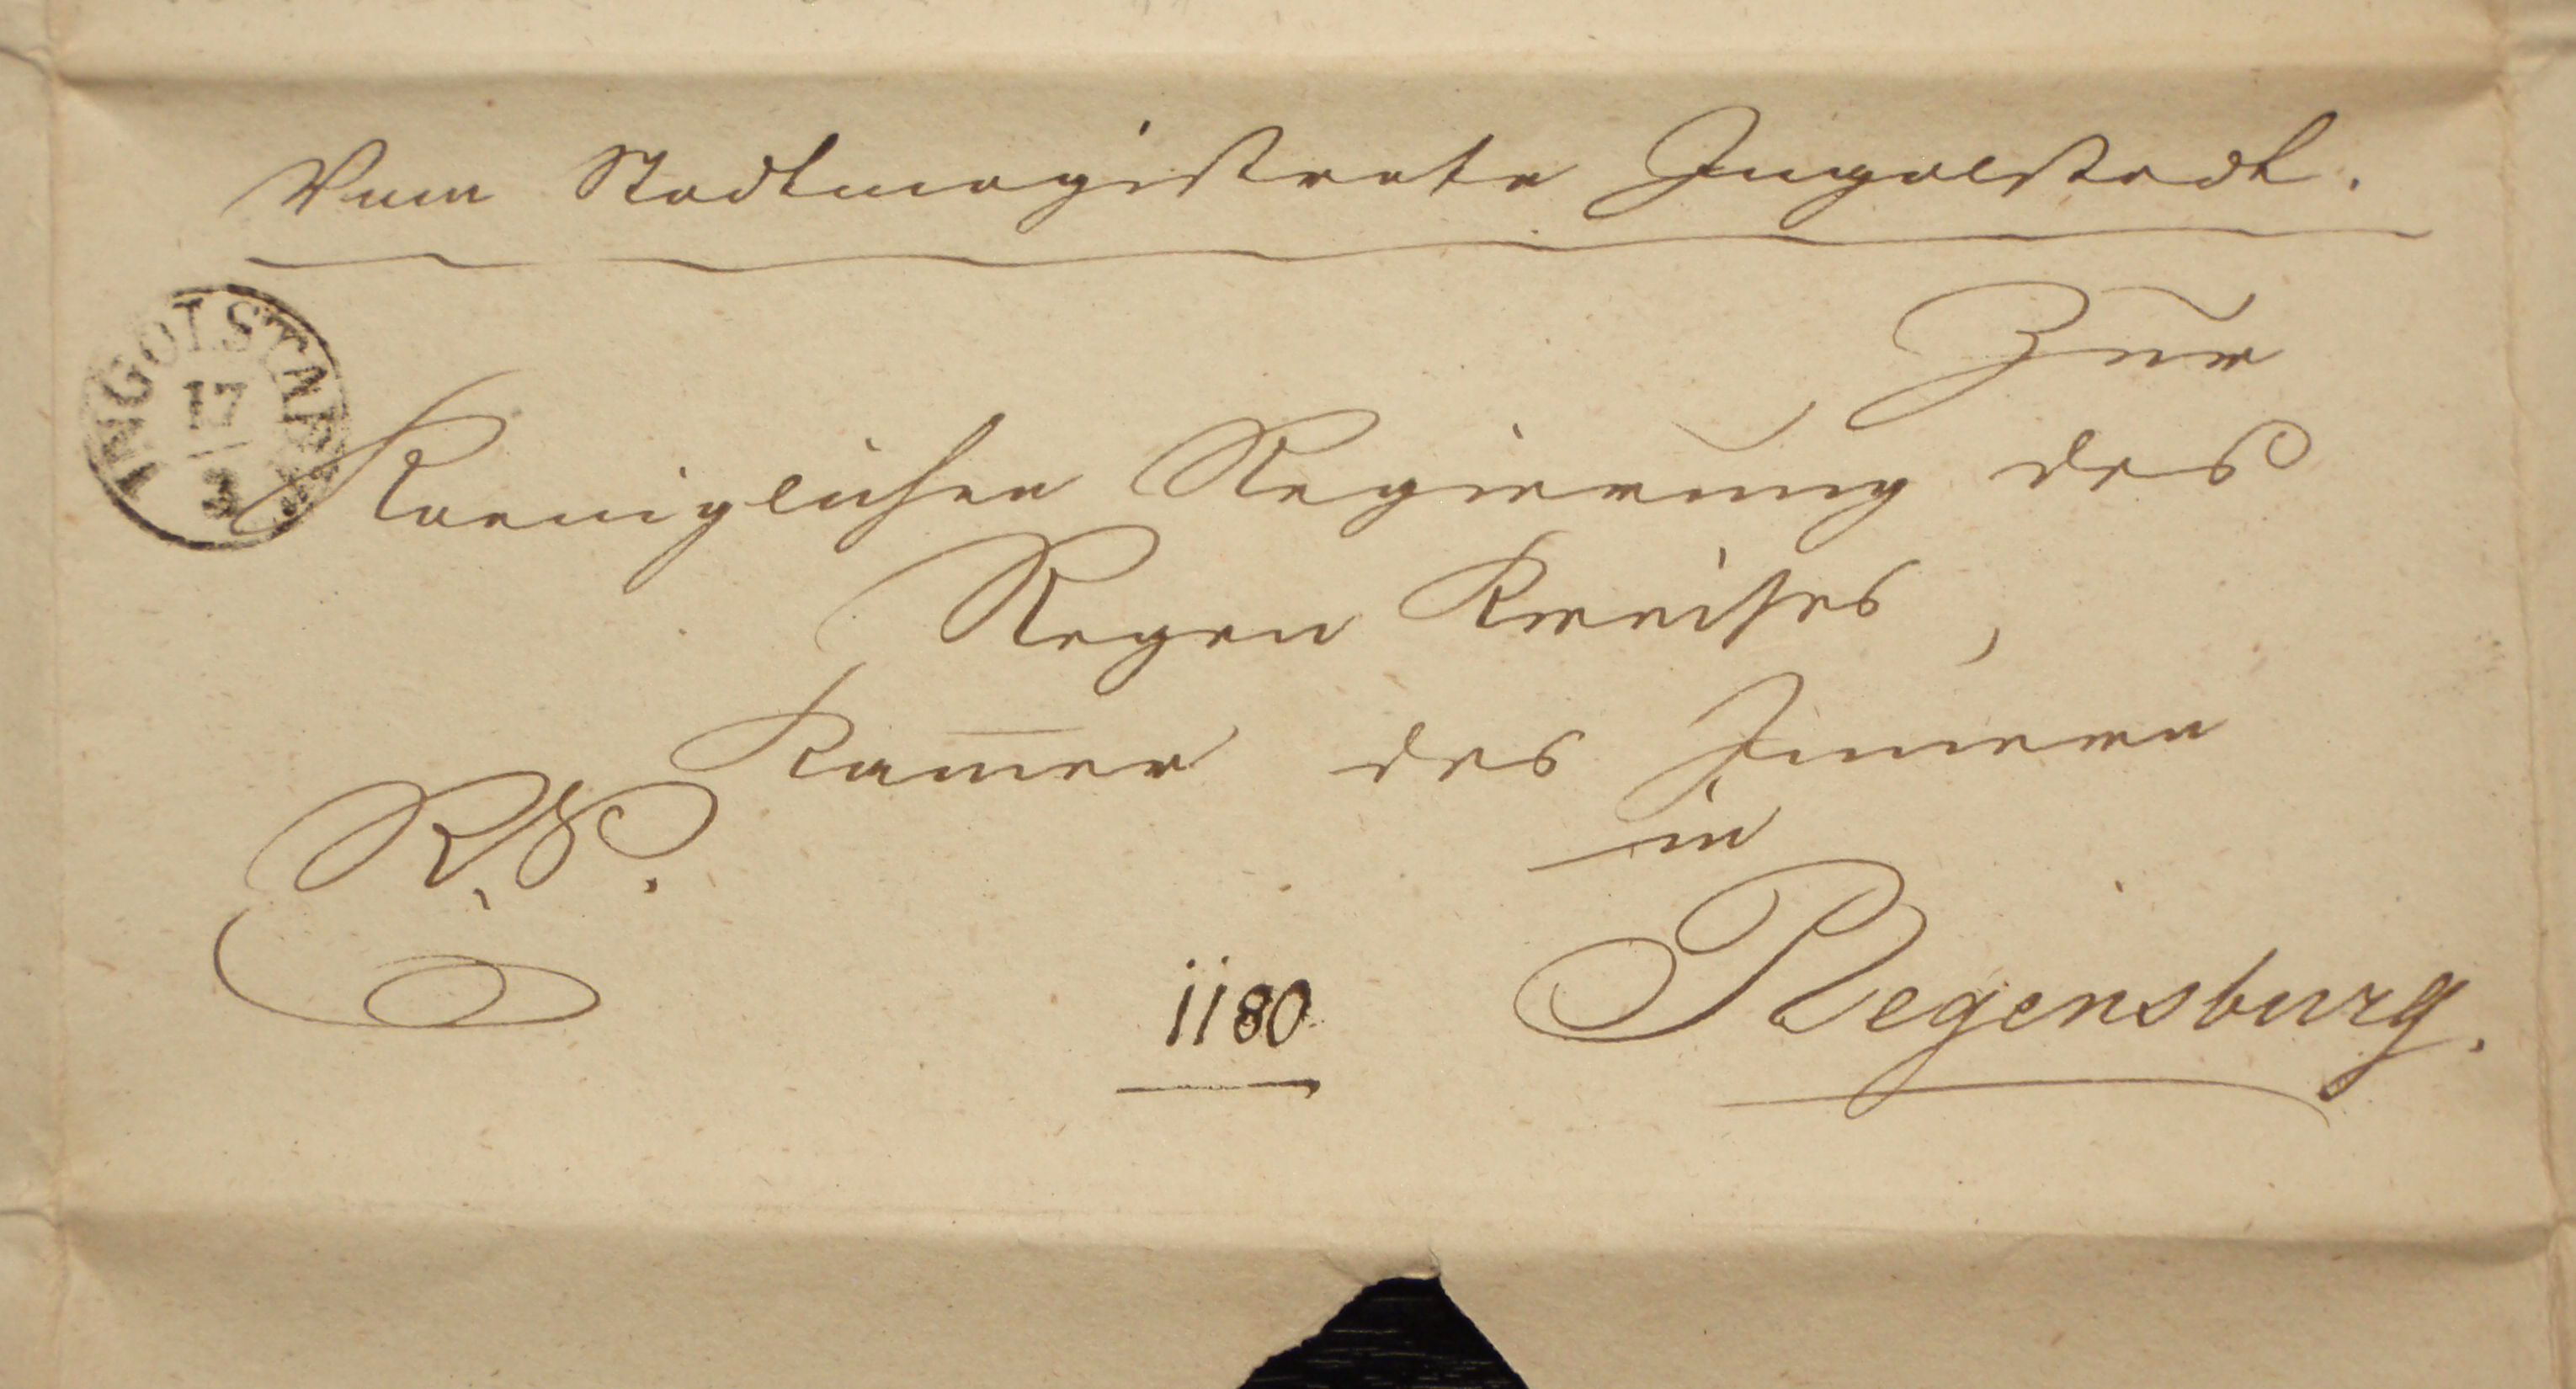 Vom Stadtmagistrate Ingolstadt.
INGOLSTADT
17
3
Zur
Koeniglichen Regierung des
Regen Kreises,
Kam̅er des Innern
R. S.
in
1180
Regensburg.